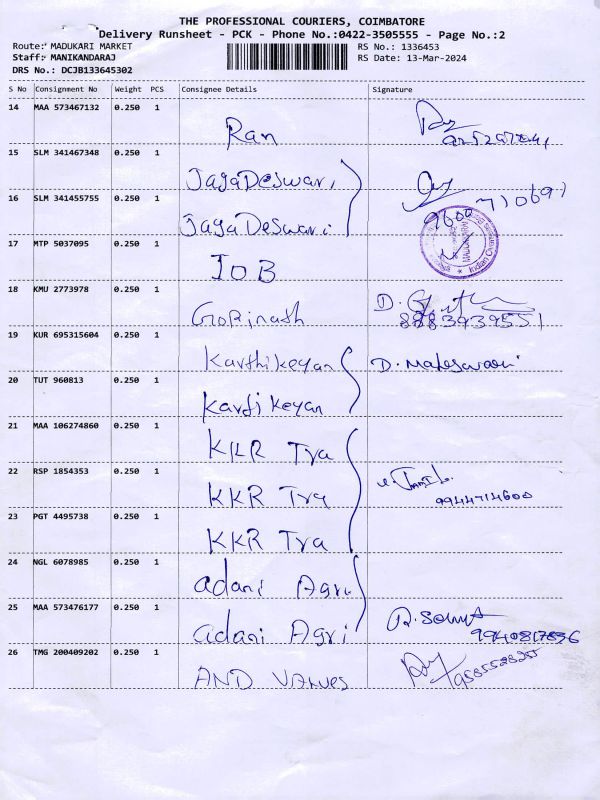 THE PROFESSIONAL COURIERS, COIMBATORE
Delivery Runsheet - PCK - Phone No.:0422-3505555 - Page No.:2
Route: MADUKARI MARKET RS No.: 1336453
Staff: MANIKANDARAJ RS Date: 13-Mar-2024
DRS No.: DCJB133645302
S No Consignment No Weight PCS Consignee Details Signature
14 MAA 573467132 0.250 1
Ram
15 SLM 341467348 0.250 1
JagaDeswari
16 SLM 341455755 0.250 1
JagaDeswari
9600 710697
17 MTP 5037095 0.250 1
IOB
18 KMU 2773978 0.250 1
Gopinath
8883939551
19 KUR 695315604 0.250 1
Karthikeyan D. Maheswari
20 TUT 960813 0.250 1
Kartikeyan
21 MAA 106274860 0.250 1
KKR Tra
22 RSP 1854353 0.250 1
KKR Tra 9944714600
23 PGT 4495738 0.250 1
KKR Tra
24 NGL 6078985 0.250 1
adani Agri
25 MAA 573476177 0.250 1
adani Agri 9940817836
26 TMG 200409202 0.250 1
AND VALVES 9585528255